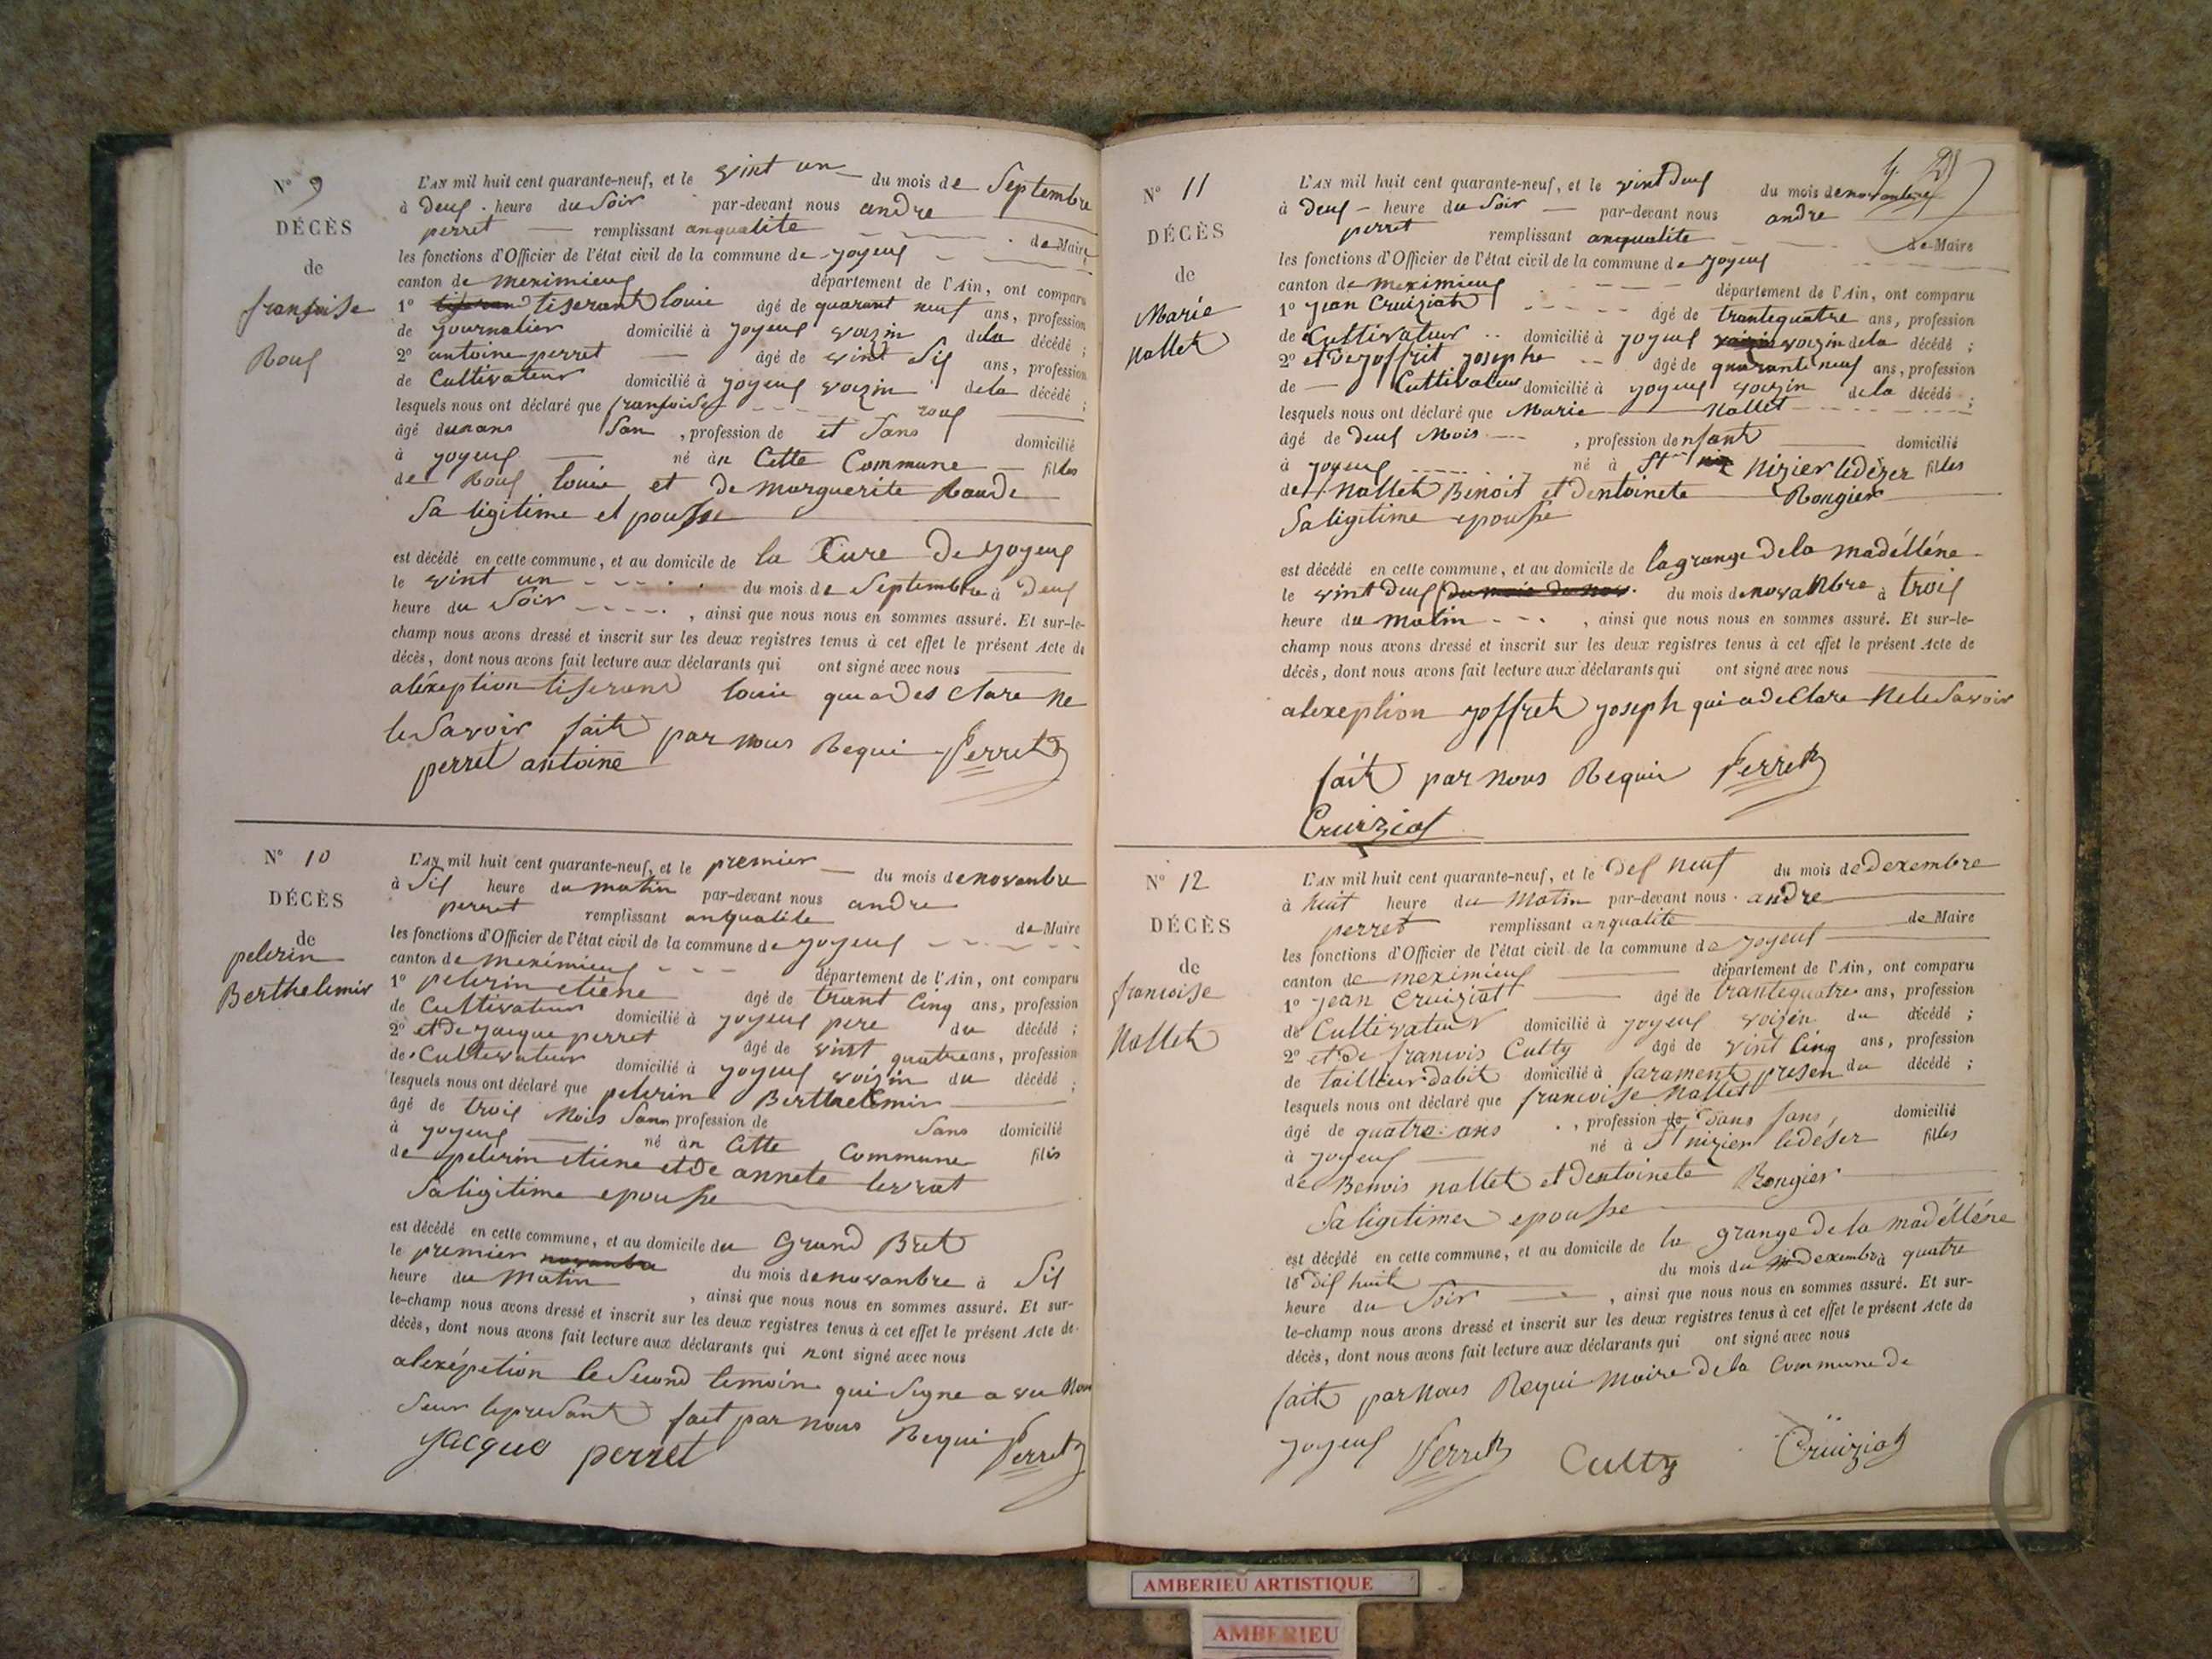 N° 9
DÉCÈS
de
françoise
Rouf
L'AN mil huit cent quarante-neuf, et le vint un du mois de Septembre
à deux heure du Soir par-devant nous andre
perret remplissant anqualite de Maire
les fonctions d'Officier de l'état civil de la commune de joyeux
canton de meximieux département de l'Ain, ont comparu
1° tiserant louis âgé de quarant neuf ans, profession
de journalier domicilié à joyeux voizin dela décédé ;
2° antoine perret âgé de vint Six ans, profession
de Cultivateur domicilié à joyeux voizin dela décédé ;
lesquels nous ont déclaré que françoise rouf
âgé dunans San , profession de et Sans domicilié
à joyeux né àn Cette Commune filles
de Rouf louis et de marguerite Raude
Sa ligitime et pousse
est décédé en cette commune, et au domicile de la Cure De joyeux
le vint un du mois de Septembre à Deux
heure du Soir , ainsi que nous nous en sommes assuré. Et sur-le-
champ nous avons dressé et inscrit sur les deux registres tenus à cet effet le présent Acte de
décès, dont nous avons fait lecture aux déclarants qui ont signé avec nous
aléxeption tiserand louis quia des clare ne
le Savoir fait par nous Requi Perret
perret antoine
N° 10
DÉCÈS
de
pelerin
Berthelemir
L'AN mil huit cent quarante-neuf, et le premier du mois de novanbre
à Six heure du matin par-devant nous andre
perret remplissant anqualite de Maire
les fonctions d'Officier de l'état civil de la commune de joyeux
canton de meximieux département de l'Ain, ont comparu
1° pelerin etiene âgé de trant Cinq ans, profession
de Cultivateur domicilié à joyeux pere du décédé ;
2° et de jacque perret âgé de vint quatre ans, profession
de Cultivateur domicilié à joyeux voizin du décédé ;
lesquels nous ont déclaré que pelerin Berthelemir
âgé de trois Mois Sans profession de Sans domicilié
à joyeux né àn Cette Commune filis
de pelerin etiene et de annete levrat
Sa ligitime epousse
est décédé en cette commune, et au domicile du Grand Bret
le premier novanbre du mois de novanbre à Six
heure du Matin , ainsi que nous nous en sommes assuré. Et sur-
le-champ nous avons dressé et inscrit sur les deux registres tenus à cet effet le présent Acte de
décès, dont nous avons fait lecture aux déclarants qui nont signé avec nous
alexépetion le Second temoin qui Signe a vu Nou
Seur le presant fait par nous Requi Perret
jacque perret
N° 11
DÉCÈS
de
Marie
Nallet
L'AN mil huit cent quarante-neuf, et le vint deux du mois de novanbre
à deux heure du Soir par-devant nous andre
perret remplissant anqualite de Maire
les fonctions d'Officier de l'état civil de la commune de joyeux
canton de meximieux département de l'Ain, ont comparu
1° jean Cruiziat âgé de trantequatre ans, profession
de Cultivateur domicilié à joyeux voizin dela décédé ;
2° et de joffrit josephe âgé de quarante neuf ans, profession
de Cultivateur domicilié à joyeux voizin dela décédé ;
lesquels nous ont déclaré que Marie Nallet
âgé de deux Mois , profession denfant domicilié
à joyeux né à St Nizier ledézer filles
de Nallet Benoit et dentoinete Rongier
Sa ligitime epousse
est décédé en cette commune, et au domicile de lagrange dela madéléne
le vint deux du mois de nov du mois de novanbre à trois
heure du Matin , ainsi que nous nous en sommes assuré. Et sur-le-
champ nous avons dressé et inscrit sur les deux registres tenus à cet effet le présent Acte de
décès, dont nous avons fait lecture aux déclarants qui ont signé avec nous
alexeption joffret joseph qui a deClare Ne le Savoir
fait par nous Requir Perret
Cruiziat
N° 12
DÉCÈS
de
francoise
Nallet
L'AN mil huit cent quarante-neuf, et le Dix neuf du mois de dexembre
à huit heure du Matin par-devant nous andre
perret remplissant anqualite de Maire
les fonctions d'Officier de l'état civil de la commune de joyeux
canton de meximieux département de l'Ain, ont comparu
1° jean Cruiziat âgé de trantequatre ans, profession
de Cultivateur domicilié à joyeux voizin du décédé ;
2° et de francois Culty âgé de vint Cinq ans, profession
de tailleur dabit domicilié à farament presen du décédé ;
lesquels nous ont déclaré que francoise Nallet
âgé de quatre ans , profession de Sans Sans , domicilié
à joyeux né à St nizier ledeser filles
de Benois nallet et dentoinete Rongier
Sa ligitimer epousse
est décédé en cette commune, et au domicile de la grange de la madéléne
le dix huit du mois du dexembre à quatre
heure du Soir , ainsi que nous nous en sommes assuré. Et sur-
le-champ nous avons dressé et inscrit sur les deux registres tenus à cet effet le présent Acte de
décès, dont nous avons fait lecture aux déclarants qui ont signé avec nous
fait par nous Requi Maire de la Commune de
joyeux Perret Culty Cruiziat
AMBERIEU ARTISTIQUE
AMBERIEU